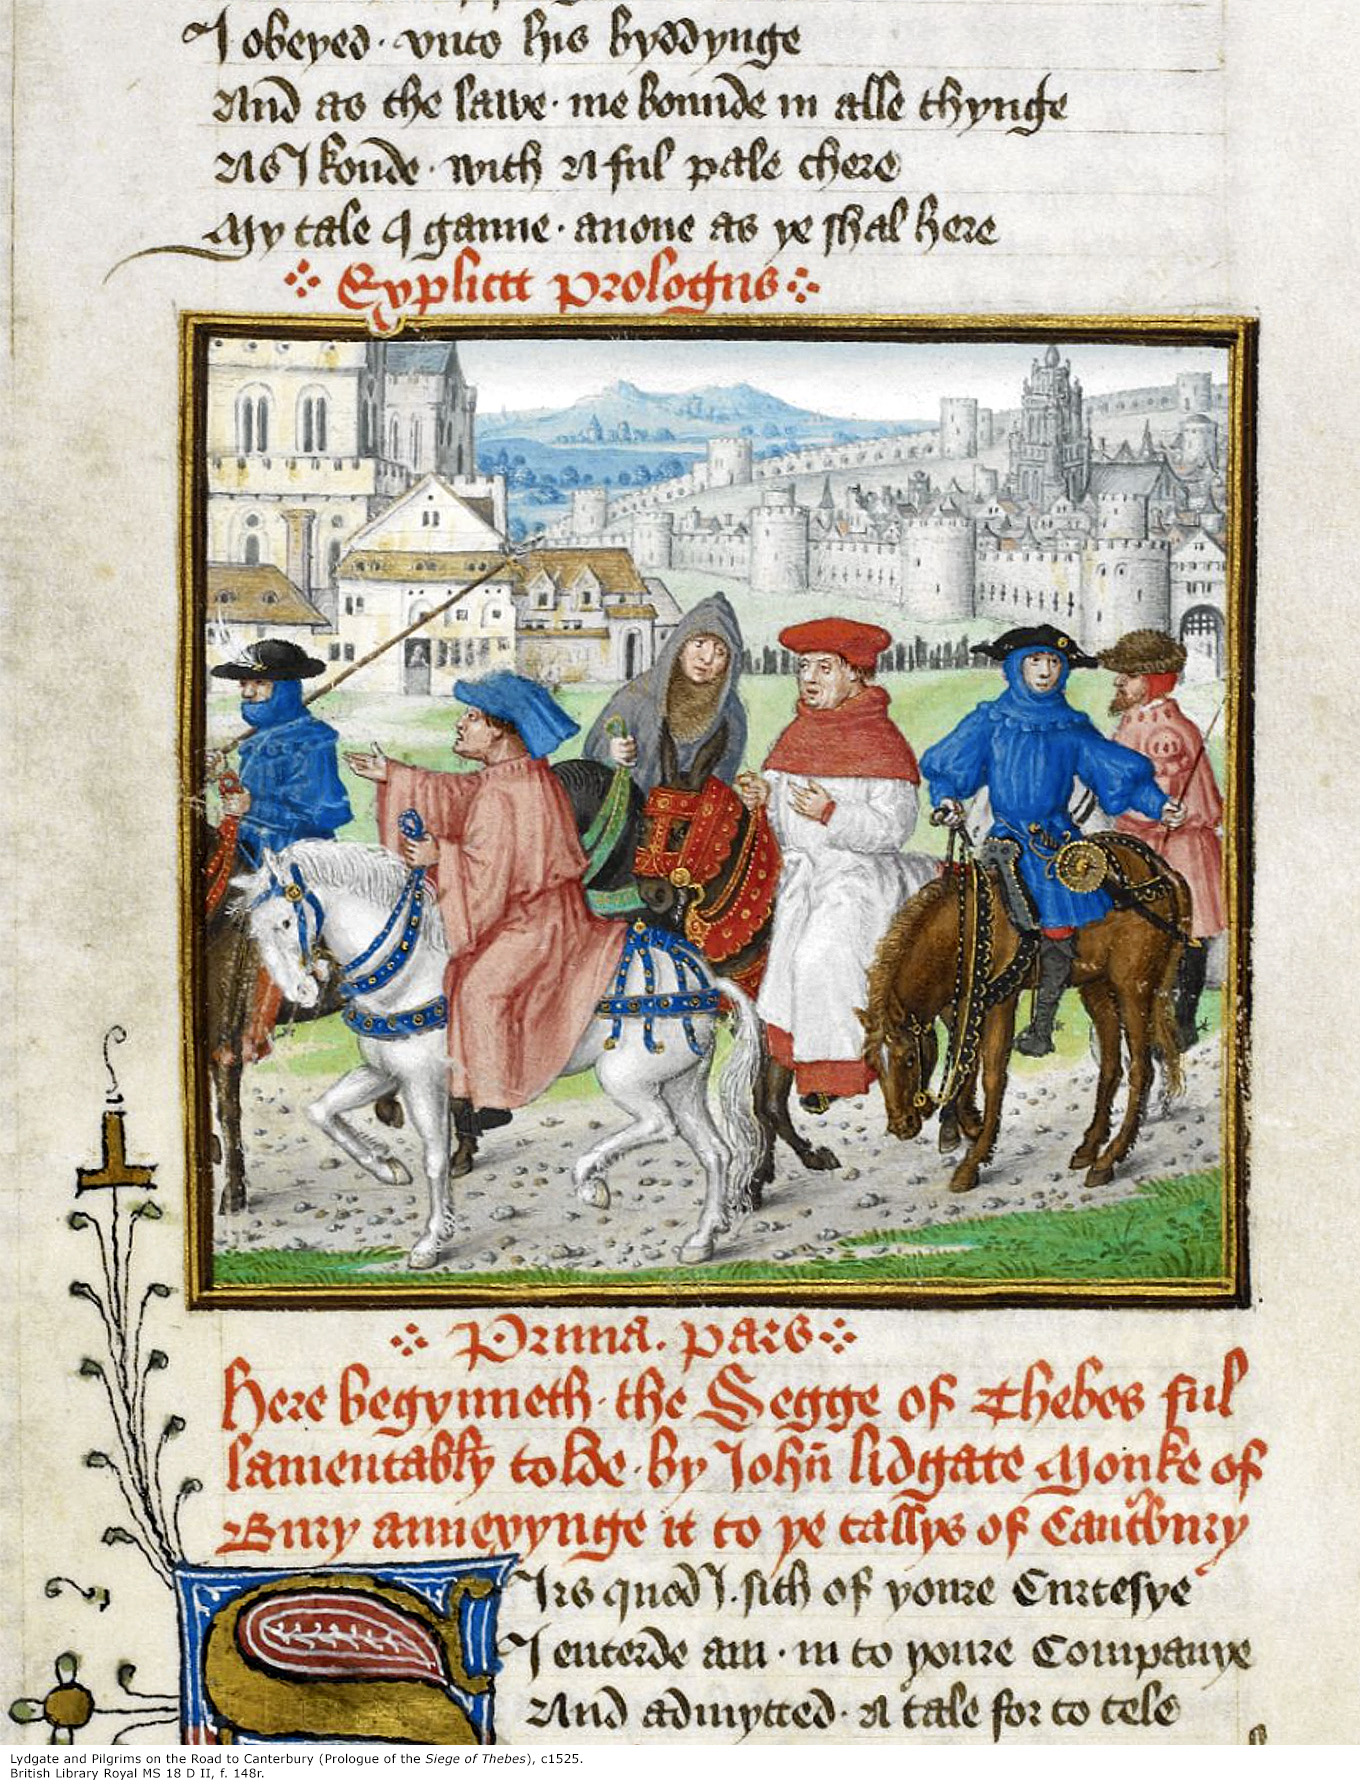 I obeyed · vnto his byddynge
And as the lawe · me bounde in alle thynge
As I koude · with A ful pale chere
My tale I ganne · anone as ye shal here
Explicit prologus
Prima . pars
Here begynneth · the Segge of Thebes ful
lamentably tolde · by John lidgate Monke of
Bury annexynge it to ye tallys of Cantbury
Irs quod I . sith of youre Curtesye
I enterde am · in to youre Companye
And admytted · A tale for to tele
Lydgate and Pilgrims on the Road to Canterbury (Prologue of the Siege of Thebes), c1525.
British Library Royal MS 18 D II, f. 148r.